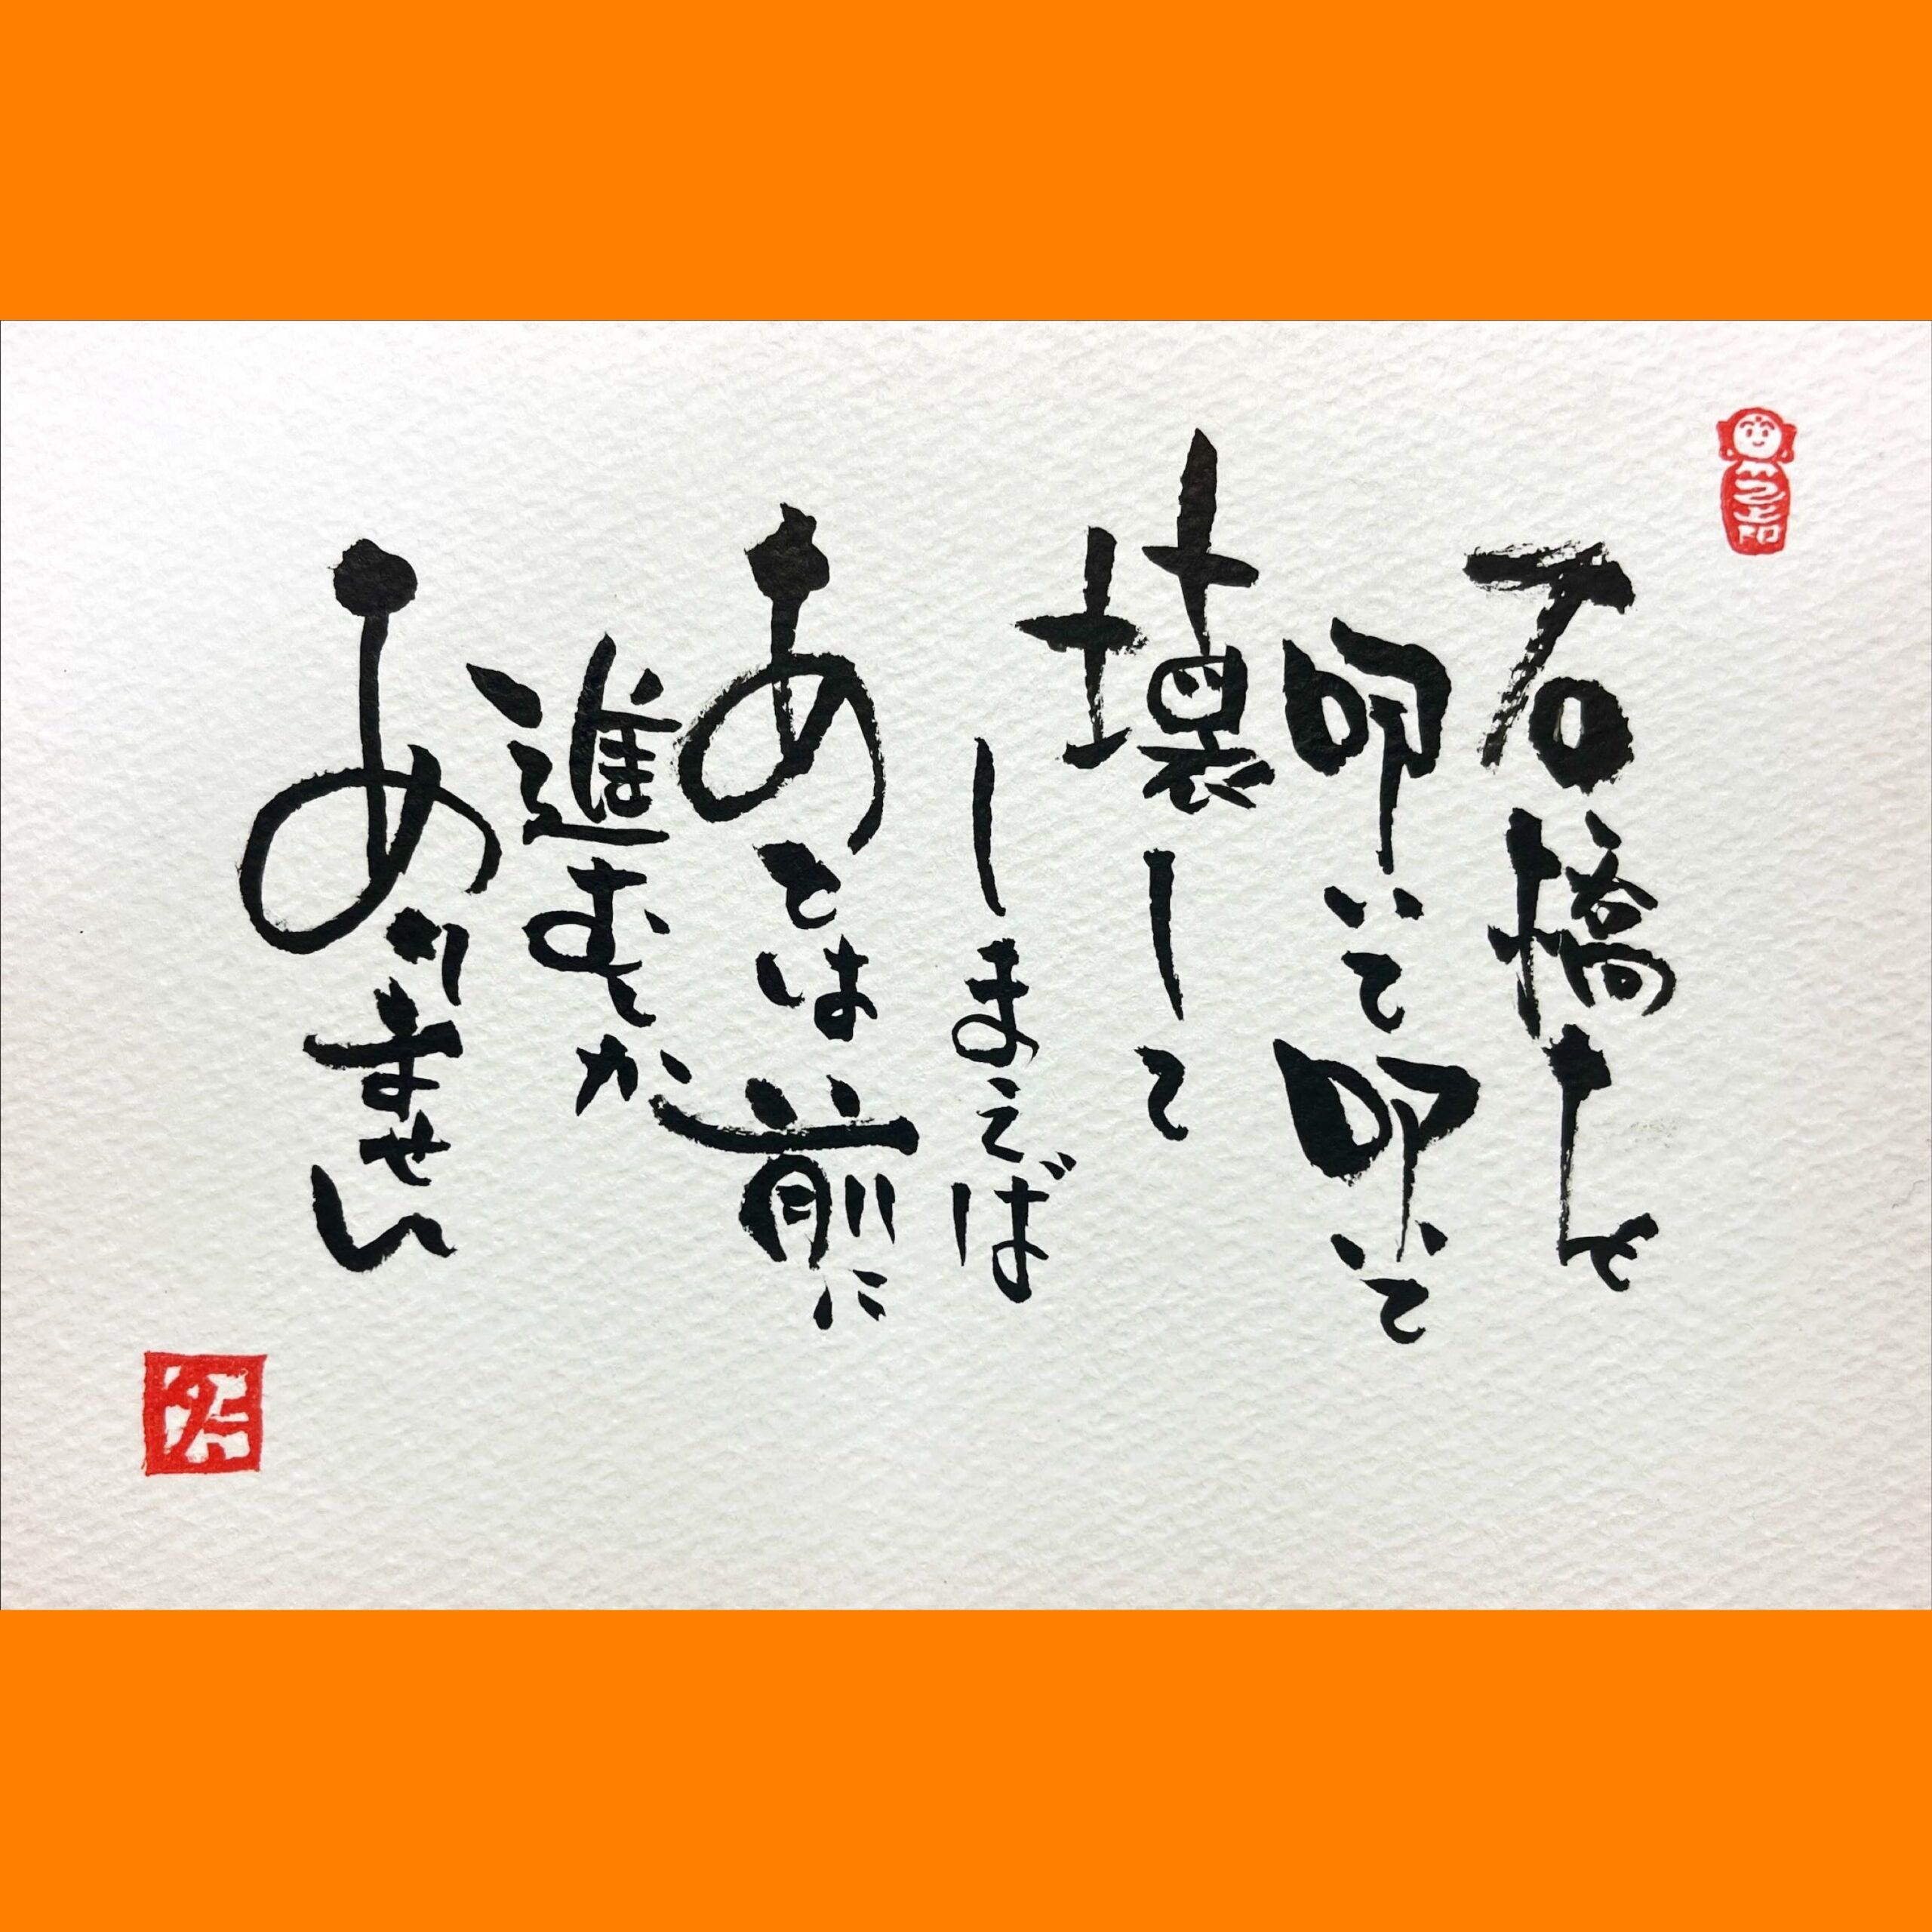 石橋を
叩いて叩いて
壊して
しまえば
あとは前に
進むしか
ありません